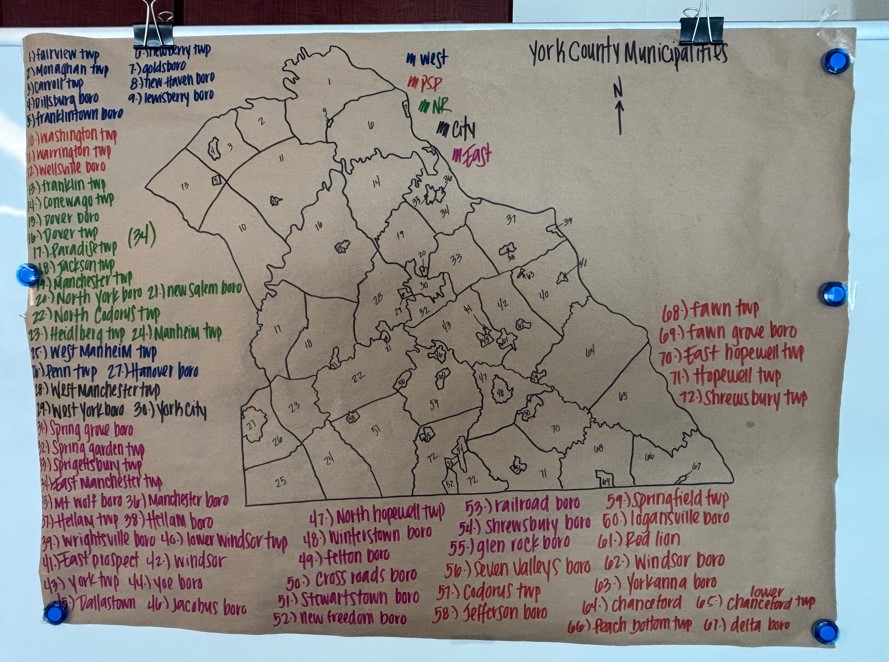 York County Municipalities
N
West
PSP
NR
City
East
1.) fairview twp
2.) Monaghan twp
3.) Carroll twp
4.) Dillsburg boro
5.) franklintown boro
6.) newberry twp
7.) goldsboro
8.) new Haven boro
9.) lewisberry boro
10.) Washington twp
11.) Warrington twp
12.) Wellsville boro
13.) franklin twp
14.) Conewago twp
15.) Dover boro
16.) Dover twp
17.) Paradise twp (34)
18.) Jackson twp
19.) Manchester twp
20.) North York boro 21.) new salem boro
22.) North Codorus twp
23.) Heidlberg twp 24.) Manheim twp
25.) West Manheim twp
26.) Penn twp 27.) Hanover boro
28.) West Manchester twp
29.) West York boro 30.) York City
31.) Spring grove boro
32.) Spring garden twp
33.) Sprigettsbury twp
34.) East Manchester twp
35.) Mt Wolf boro 36.) Manchester boro
37.) Hellam twp 38.) Hellam boro
39.) Wrightsville boro 40.) lower Windsor twp
41.) East prospect 42.) Windsor
43.) York twp 44.) Yoe boro
45.) Dallastown 46.) Jacobus boro
47.) North hopewell twp
48.) Winterstown boro
49.) felton boro
50.) Cross roads boro
51.) Stewartstown boro
52.) new freedom boro
53.) railroad boro
54.) Shrewsbury boro
55.) glen rock boro
56.) Seven Valleys boro
57.) Codorus twp
58.) Jefferson boro
59.) Springfield twp
60.) logansville boro
61.) Red lion
62.) Windsor boro
63.) Yorkanna boro
64.) Chanceford 65.) lower chanceford twp
66.) Peach bottom twp 67.) delta boro
68.) fawn twp
69.) fawn grove boro
70.) East hopewell twp
71.) Hopewell twp
72.) Shrewsbury twp
1
2
3
6
9
11
13
10
14
16
36
35
34
37
39
19
33
20
30
28
29
32
43
44
42
40
41
63
17
18
22
21
64
65
47
48
59
27
23
26
51
24
25
72
52
72
71
70
68
69
66
67